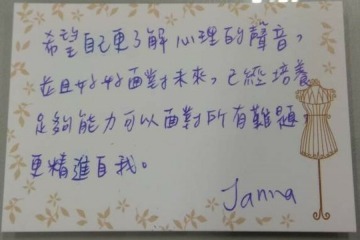 希望自己更了解心理的聲音,
並且好好面對未來,已經培養
足夠能力可以面對所有難題,
更精進自我。
Janna